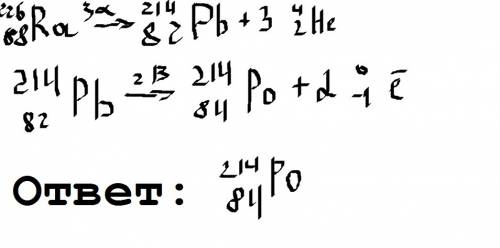 ²²⁶₈₈Ra 3α→ ²¹⁴₈₂Pb + 3 ⁴₂He
²¹⁴₈₂Pb 2β→ ²¹⁴₈₄Po + 2 ⁰₋₁ē
Ответ: ²¹⁴₈₄Po